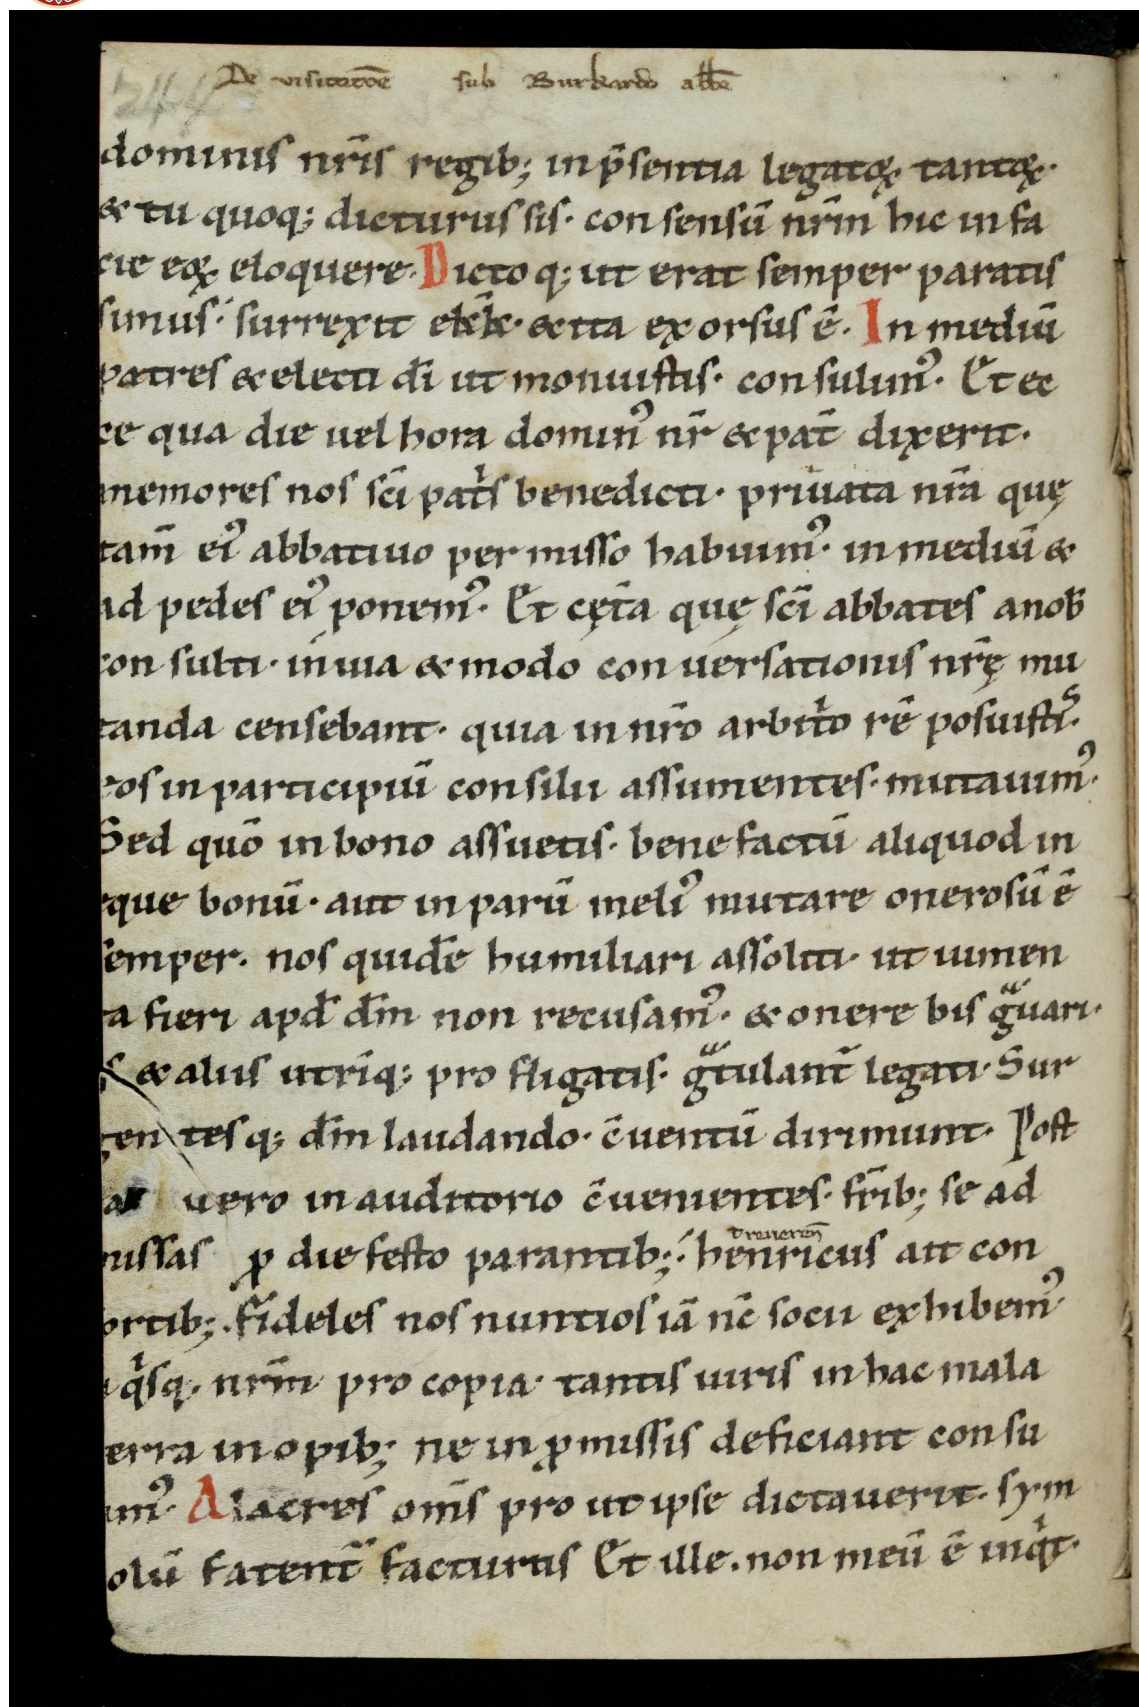 244
De visitatōe sub Burkardo abb̄e
dominis nr̄is regib; in p̄sentia legatoꝝ tantoꝝ·
& tu quoq; dicturus sis· con sensū nr̄m hic in fa
cie eoꝝ eloquere· Dicto q; ut erat semper paratis
simus· surrexit ekk̄· & ita ex orsus ē· In mediū
patres & electi dī ut monuistis· con sulimꝰ· Et ec
ce qua die uel hora dominꝰ nr̄ & pat̄ dixerit·
memores nos sc̄i pat̄s benedicti· priuata nr̄a quę
tam̄ eiꝰ abbatiuo per misso habuimꝰ· in mediū &
ad pedes eiꝰ ponemꝰ· Et cęt̄a quę sc̄i abbates a nob̄
con sulti· in uia & modo con uersationis nr̄ę mu
tanda censebant· quia in nr̄o arbit̊o rē posuistiˢ·
eos in participiū consilii assumentes· mutauimꝰ·
Sed quō in bono assuetis· bene factū aliquod in
eque bonū· aut in parū meliꝰ mutare onerosū ē
semper· nos quidē humiliari assoliti· ut iumen
ta fieri apd̄ dm̄ non recusamꝰ· & onere bis gᵃuari·
s & aliis utriq; pro fligatis· gᵃtulant̄ legati· Sur
gen tesq; dm̄ laudando· c̄uentū dirimunt· Post
uero in auditorio c̄uenientes· fr̄ib; se ad
missas ꝓ die festo parantib;· henricus ait con
treueren̄
ortib;· fideles nos nuntios iā nc̄ socii exhibemꝰ·
qⁱsq· nr̄m pro copia· tantis uiris in hac mala
erra in opib; ne in ꝓmissis deficiant con su
imꝰ· Alacres om̄s pro ut ipse dictauerit· sym
olū fatent̄ facturis Et ille· non meū ē inqⁱt·